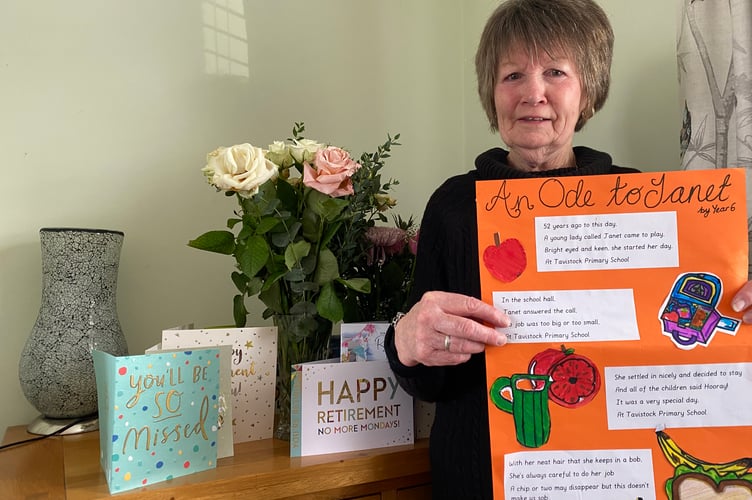 An Ode to Janet
by Year 6
52 years ago to this day,
A young lady called Janet came to play.
Bright eyed and keen, she started her day,
At Tavistock Primary School
In the school hall,
Janet answered the call,
No job was too big or too small,
At Tavistock Primary School
She settled in nicely and decided to stay
And all of the children said Hooray!
It was a very special day.
At Tavistock Primary School
With her neat hair that she keeps in a bob.
She's always careful to do her job
A chip or two may disappear but this doesn't
make us sob
YOU'LL BE
SO
Missed
HAPPY
RETIREMENT
NO MORE MONDAYS!